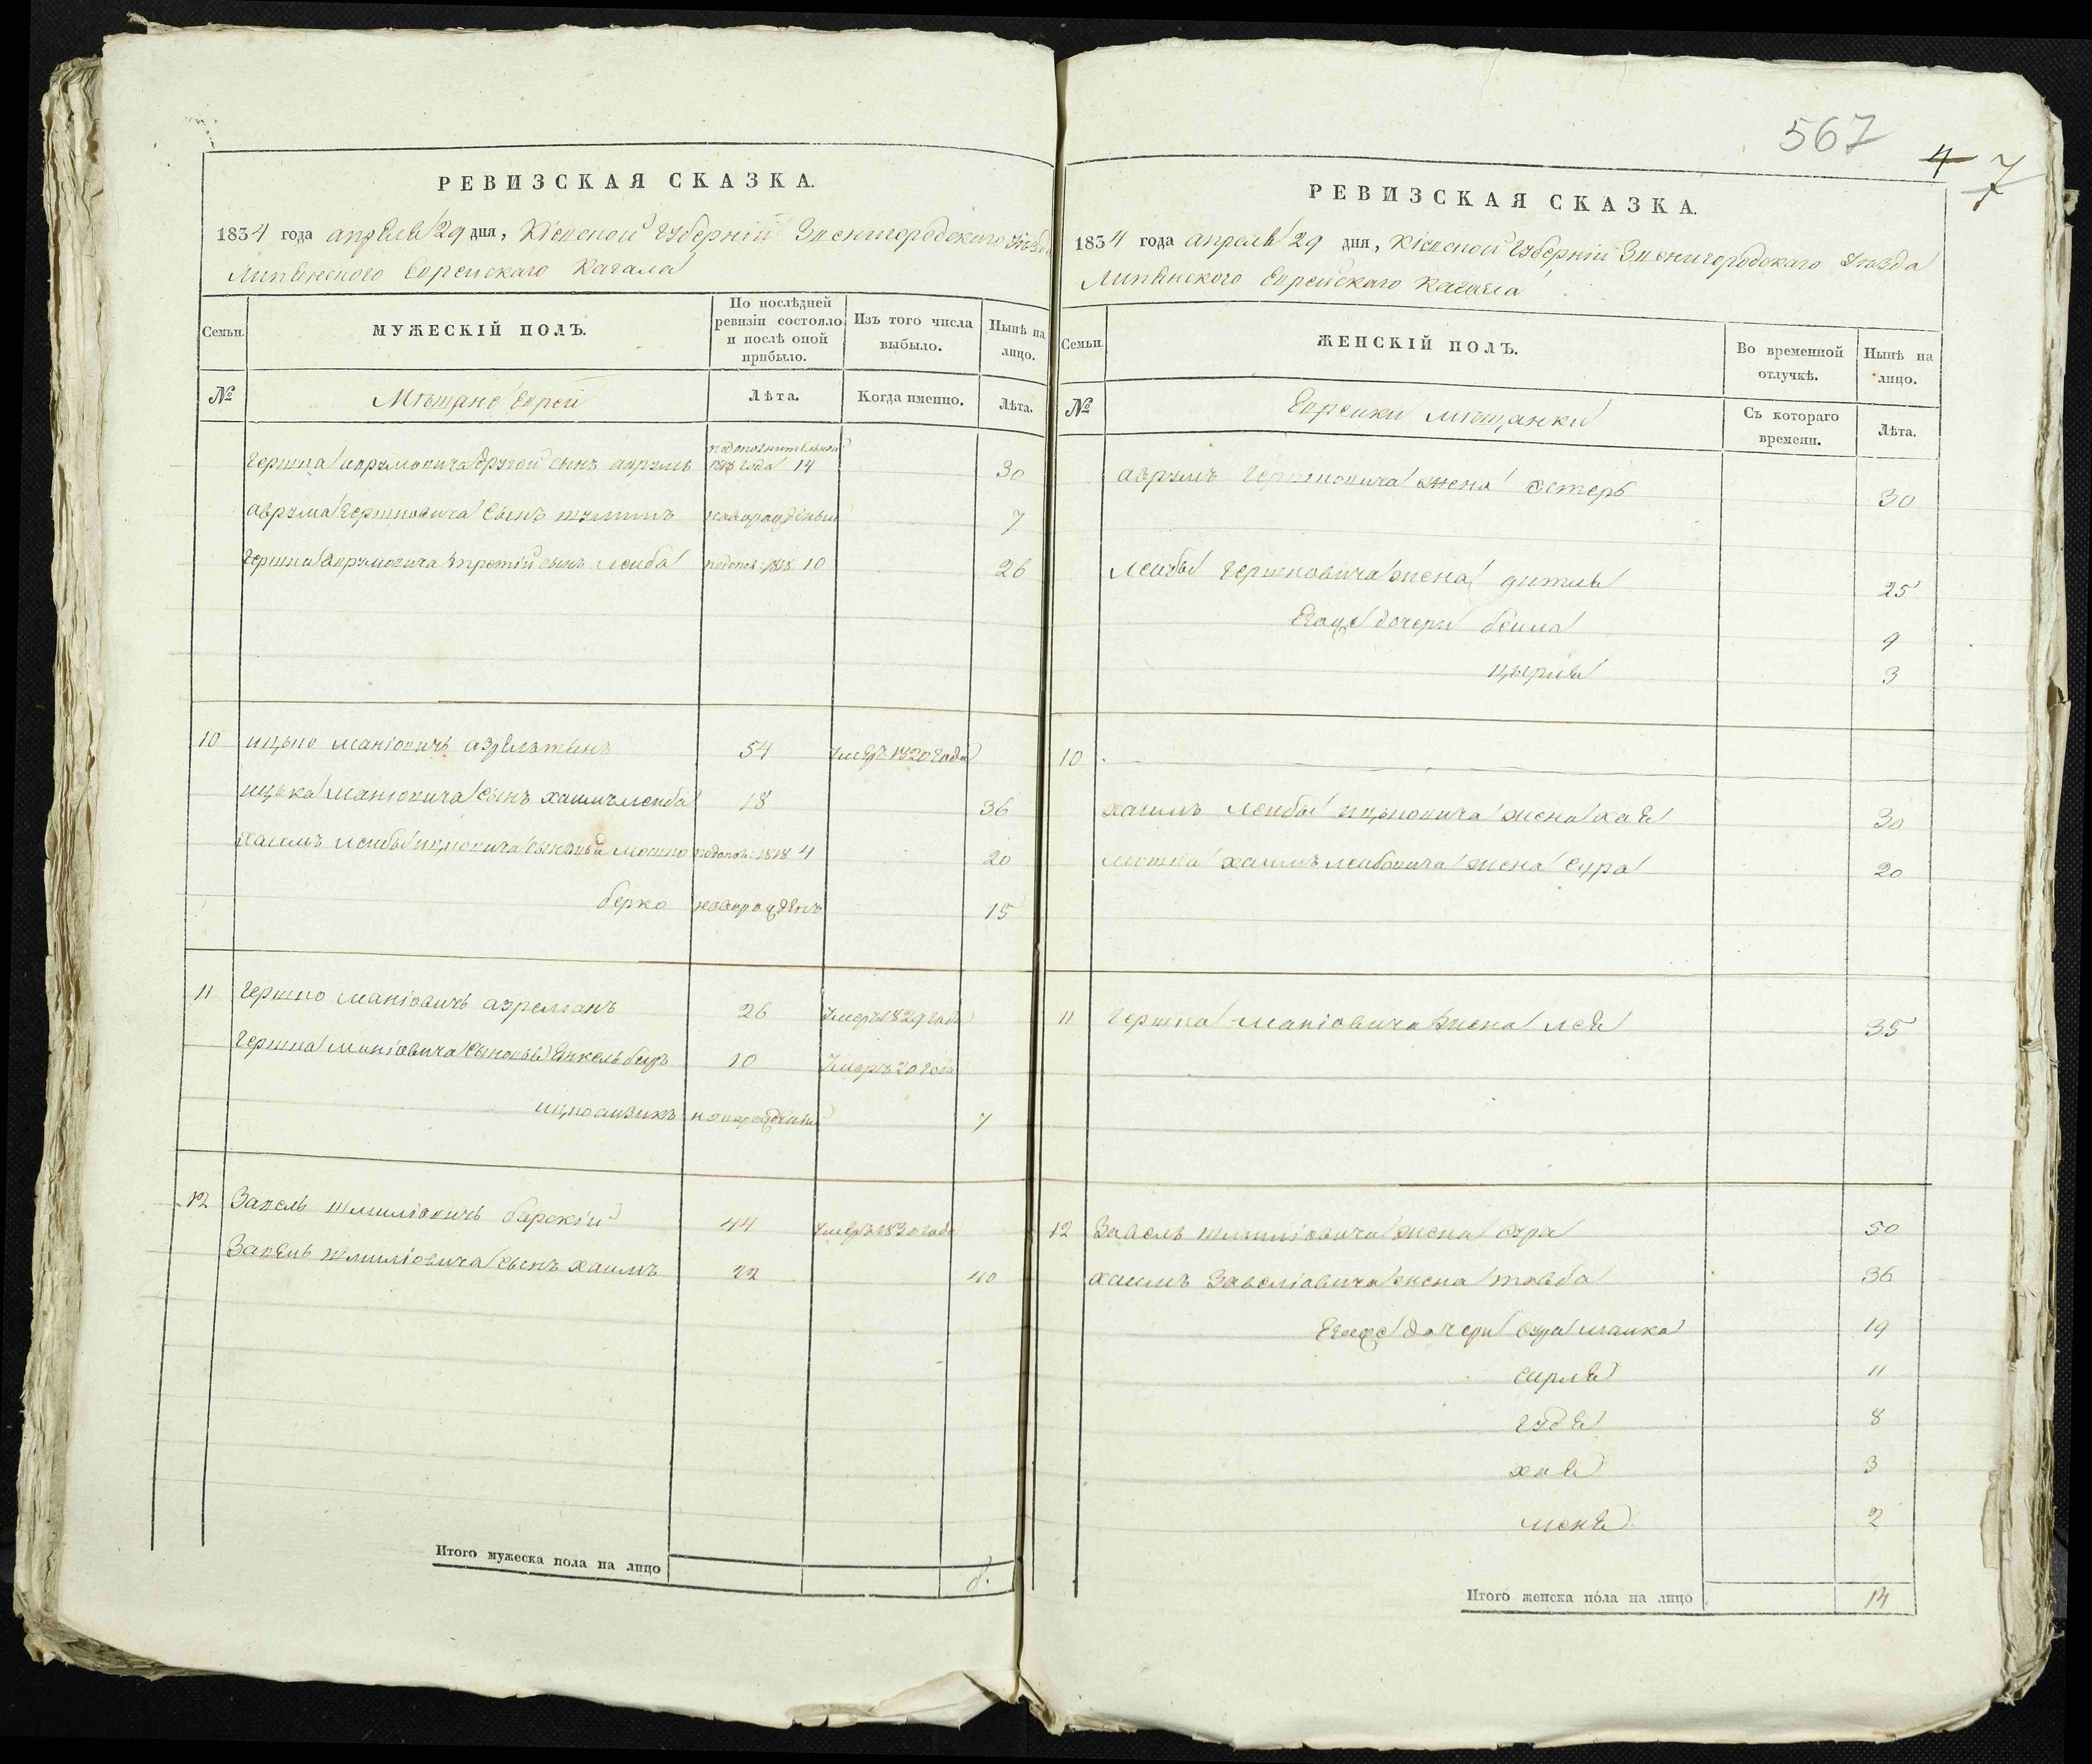 567
4 7
РЕВИЗСКАЯ СКАЗКА.
1834 года апреля 29 дня, Кіевской Губерніи Звенигородского Уезда
Липянского Еврейскаго Кагала
Семьи.
МУЖЕСКІЙ ПОЛЪ.
По послѣдней ревизіи состояло и послѣ оной прибыло.
Изъ того числа выбыло.
Нынѣ на лицо.
№
Мѣщане Евреи
Лѣта.
Когда именно.
Лѣта.
Гершка Аврумовича другой сынъ аврумъ 1818 года 14 30
аврума Гершковича Сынъ новорожденый 7
Гершка Аврумовича третій сынъ Лейба 1818 10 26
10 ицько маніовичъ 54 умеръ 1820 года
ицька маніовича Сынъ хаимъ лейба 18 36
хаимъ Лейбы ицковича сыновья мошко 1818 4 20
берко новорожденъ 15
11 Гершко маніовичъ 26 умеръ 1829 года
Гершка маніовича Сыновья Янкель беръ 10 умеръ 20 года
ицко аизикъ новорожденый 7
12 Завель шмиліовичъ барскій 44 умеръ 1830 года
Завель шмиліовича сынъ хаимъ 22 40
Итого мужеска пола на лицо 8.
РЕВИЗСКАЯ СКАЗКА.
1834 года апреля 29 дня, Кіевской Губерніи Звенигородскаго Уезда
Липянского Еврейскаго Кагала
Семьи.
ЖЕНСКІЙ ПОЛЪ.
Во временной отлучкѣ.
Нынѣ на лицо.
№
Еврейки мѣщанки
Съ котораго времени.
Лѣта.
аврумъ Гершковича жена эстеръ 30
Лейбы Гершковича жена 25
Егоже дочери бейла 9
цырля 3
10
хаимъ Лейбы ицьковича жена хая 30
мошка хаимъ лейбовича жена Сура 20
11 Гершка маніовича жена лея 35
12 Завель шмиліовича жена сура 50
хаимъ Завеліовича жена товба 36
Егоже дочери сура малка 19
сирля 11
гудя 8
хая 3
меня 2
Итого женска пола на лицо 14